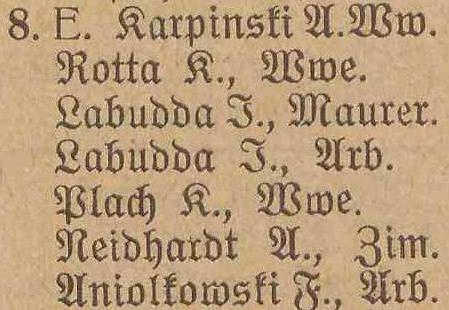 8. E. Karpinski A. Ww.
Rotta K., Wwe.
Labudda J., Maurer.
Labudda J., Arb.
Plach K., Wwe.
Neidhardt A., Zim.
Aniolkowski F., Arb.